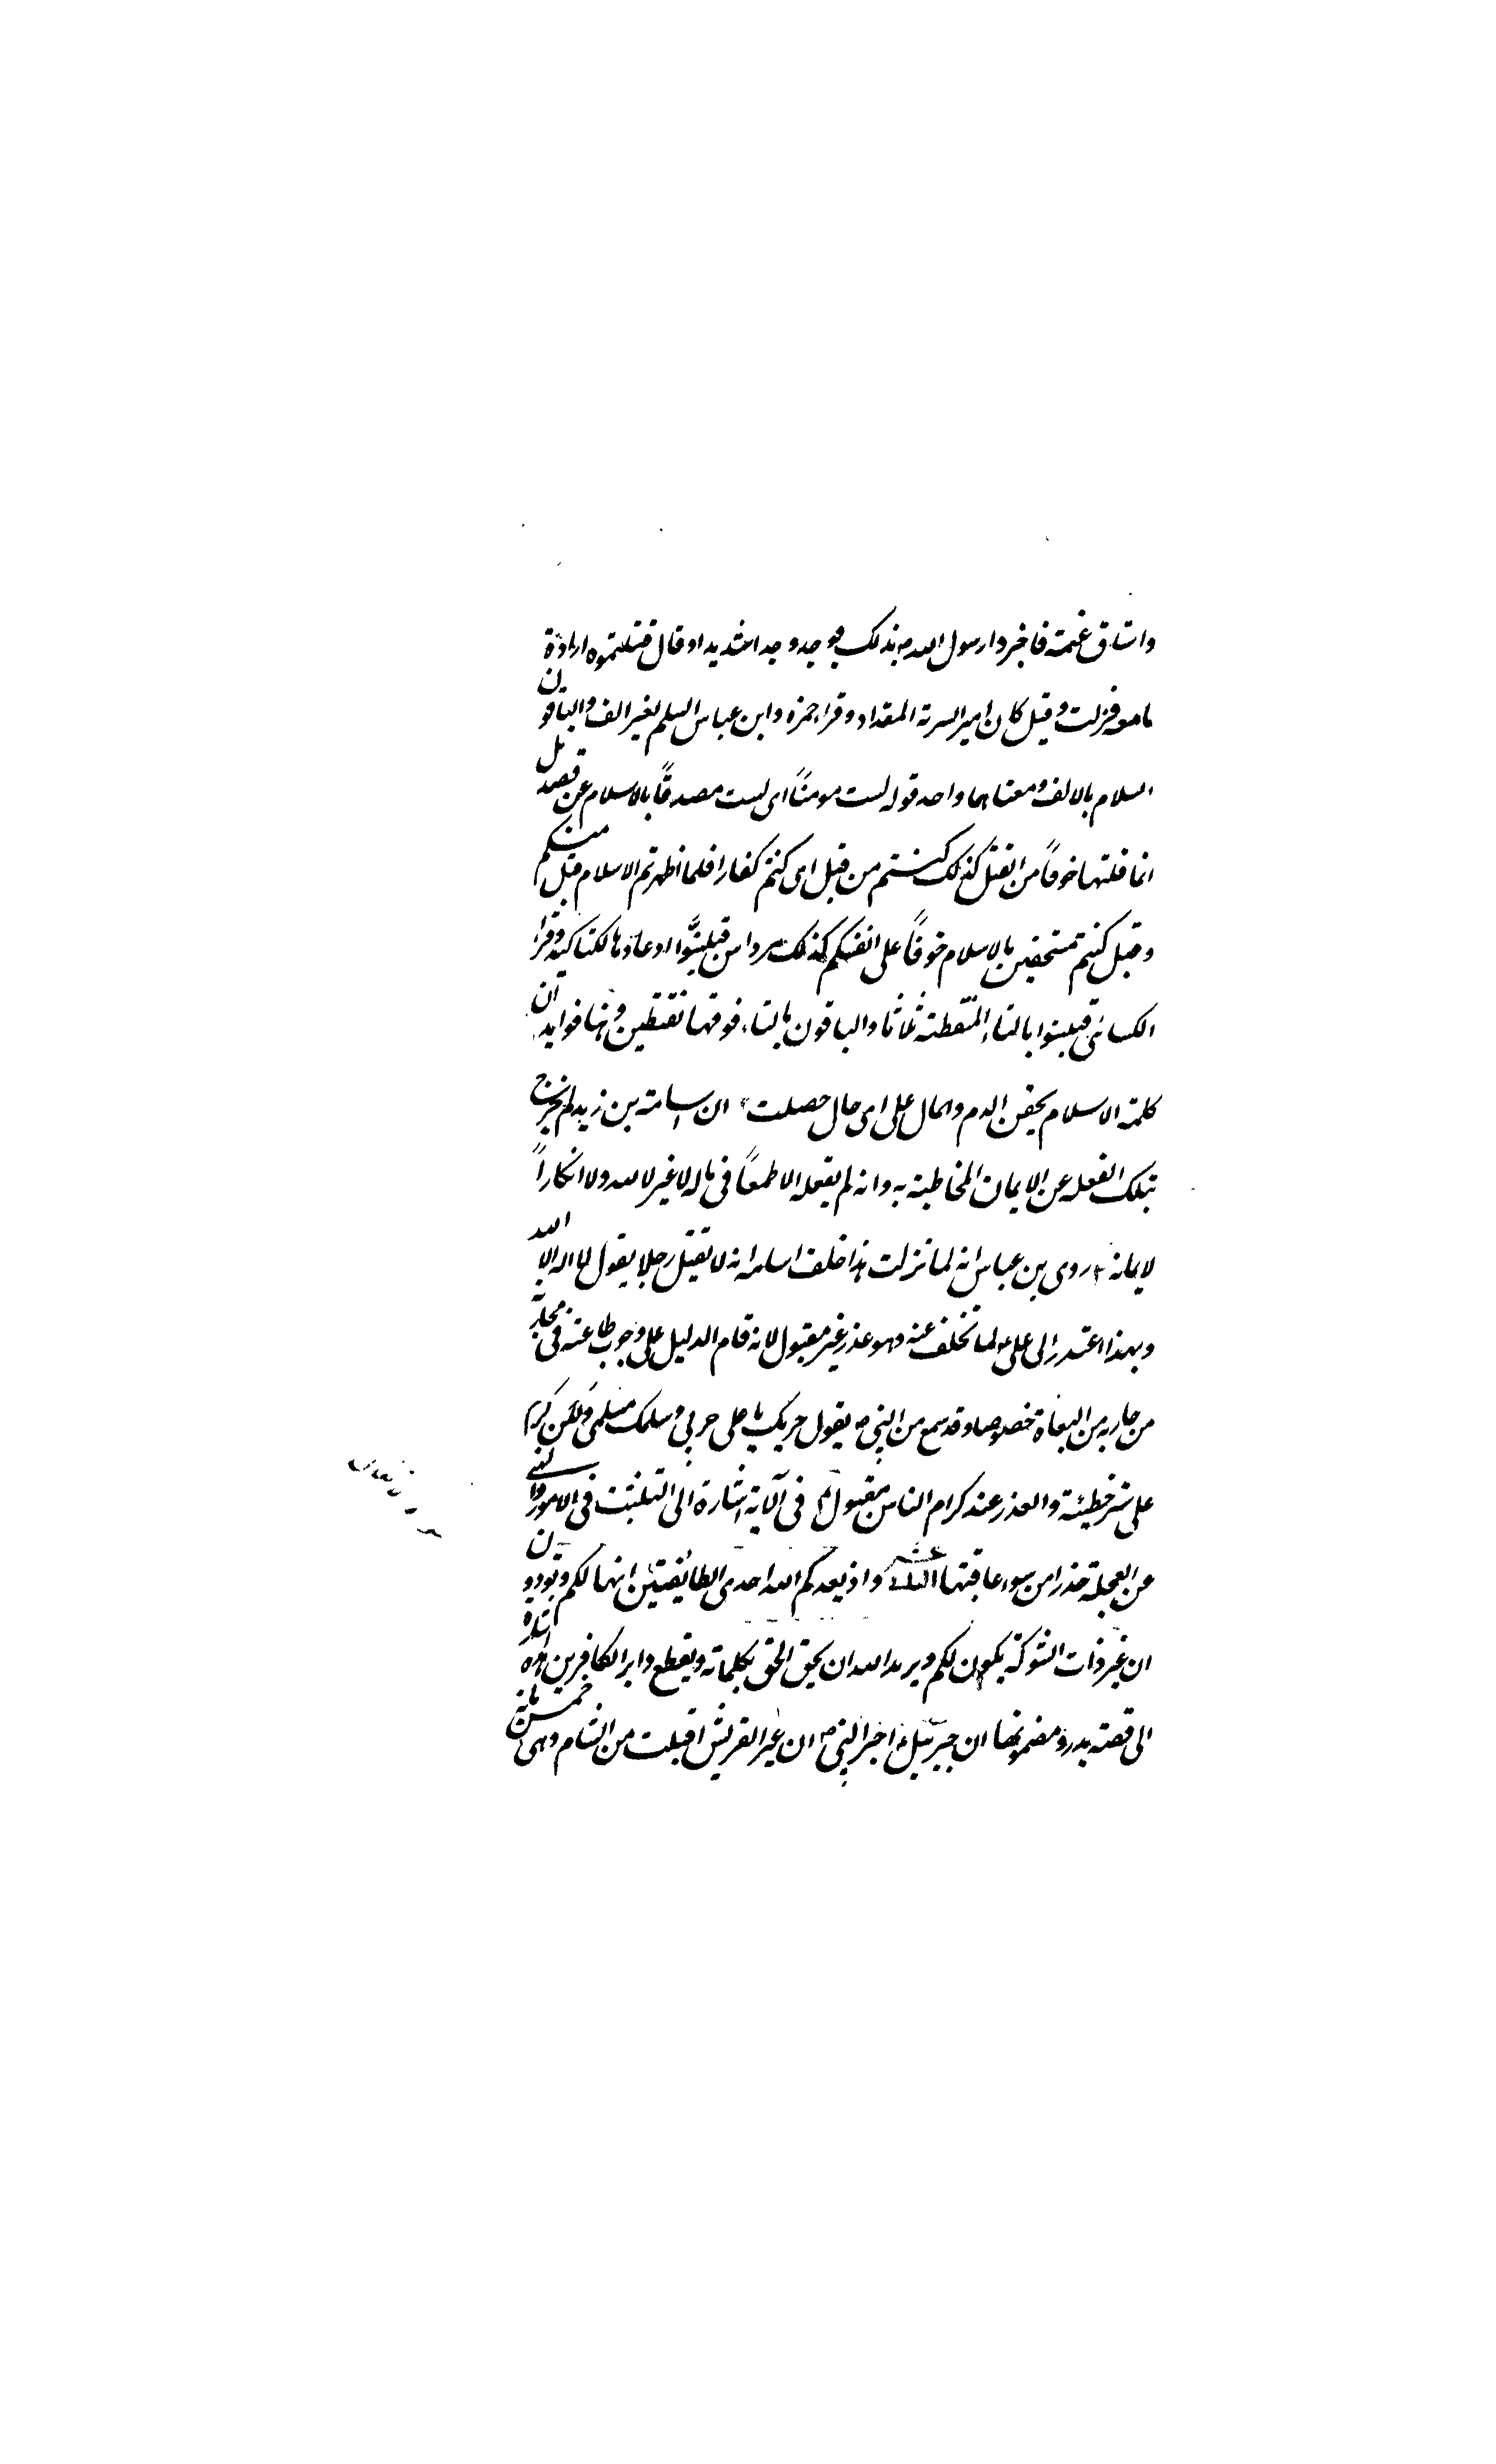 واستاق غنمته فاخبروا رسول الله ص بذلك فوجد وجدا شديدا وقال قتلتموه ارادة
ما معه فنزلت وقيل كان امير السرية المقداد وقراء حمزه وابن عباس السلم بغير الف والباقون
السلام بالالف ومعناهما واحد قوله لست مومنًا اى لست مصدقًا بالاسلام عن قصد بل
انما قلتها خوفًا من القتل كذلك كنتم من قبل اى كنتم كفارا فلما اظهرتم الاسلام قبل منكم
وقيل كنتم مستخفين بالاسلام خوفًا على انفسكم كذلك فتبينوا اعادها لكتاكيد وقراء
الكسائى فتبينوا بالثاء المنقطة ثلاثا والباقون بالتاء فوقها نقطتين وهنا فوايد ان
كلمة الاسلام يحقن الدم والمال على اى حال حصلت ان اسامة بن زيد لم يخرج
بتلك الفعلة عن الايمان المخاطبة به وانه لم يفعله الا طمعًا فى ماله لا غير لا لله ولا انكارًا
لايمانه روى بن عباس انه لما نزلت هذا حلف اسامة انه لا يقتل رجلا يقول لا اله الا الله
وبهذا اعتذر الى على ع لما تخلف عنه وهو عذر غير مقبول لانه قام الدليل على وجوب طاعته فى محاربة
من حاربه من البغاة خصوصا وقد سمع من النبى ص يقول حربك يا على حربى وسلمك سلمى ولكن كريم
على ستر خطيئة والعذر عند كرام الناس مقبول فى الآية اشارة الى التثبت فى الامور والنهى
عن العجلة حذرا من سوء عاقبتها واذ يعدكم الله احدى الطائفتين انها لكم وتودون
ان غير ذات الشوكة يكون لكم ويريد الله ان يحق الحق بكلماته ويقطع دابر الكافرين هذه اشارة
الى قصة بدر ومضمونها ان جبرئيل ع اخبر النبى ص ان عير القريش اقبلت من الشام وهى